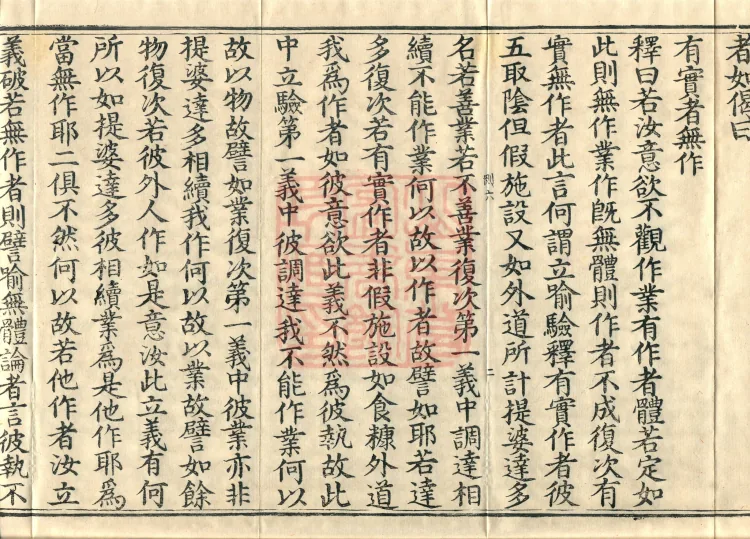 者如偈曰
有實者無作
釋曰若汝意欲不觀作業有作者體若定如
此則無作業作旣無體則作者不成復次有
實無作者此言何謂立喻驗釋有實作者彼
五取陰但假施設又如外道所計提婆達多
名若善業若不善業復次第一義中調達相
續不能作業何以故以作者故譬如耶若達
多復次若有實作者非假施設如食糠外道
我爲作者如彼意欲此義不然爲彼執故此
中立驗第一義中彼調達我不能作業何以
故以物故譬如業復次第一義中彼業亦非
提婆達多相續我作何以故以業故譬如餘
物復次若彼外人作如是意汝此立義有何
所以如提婆達多彼相續業爲是他作耶爲
當無作耶二俱不然何以故若他作者汝立
義破若無作者則譬喻無體論者言彼執不